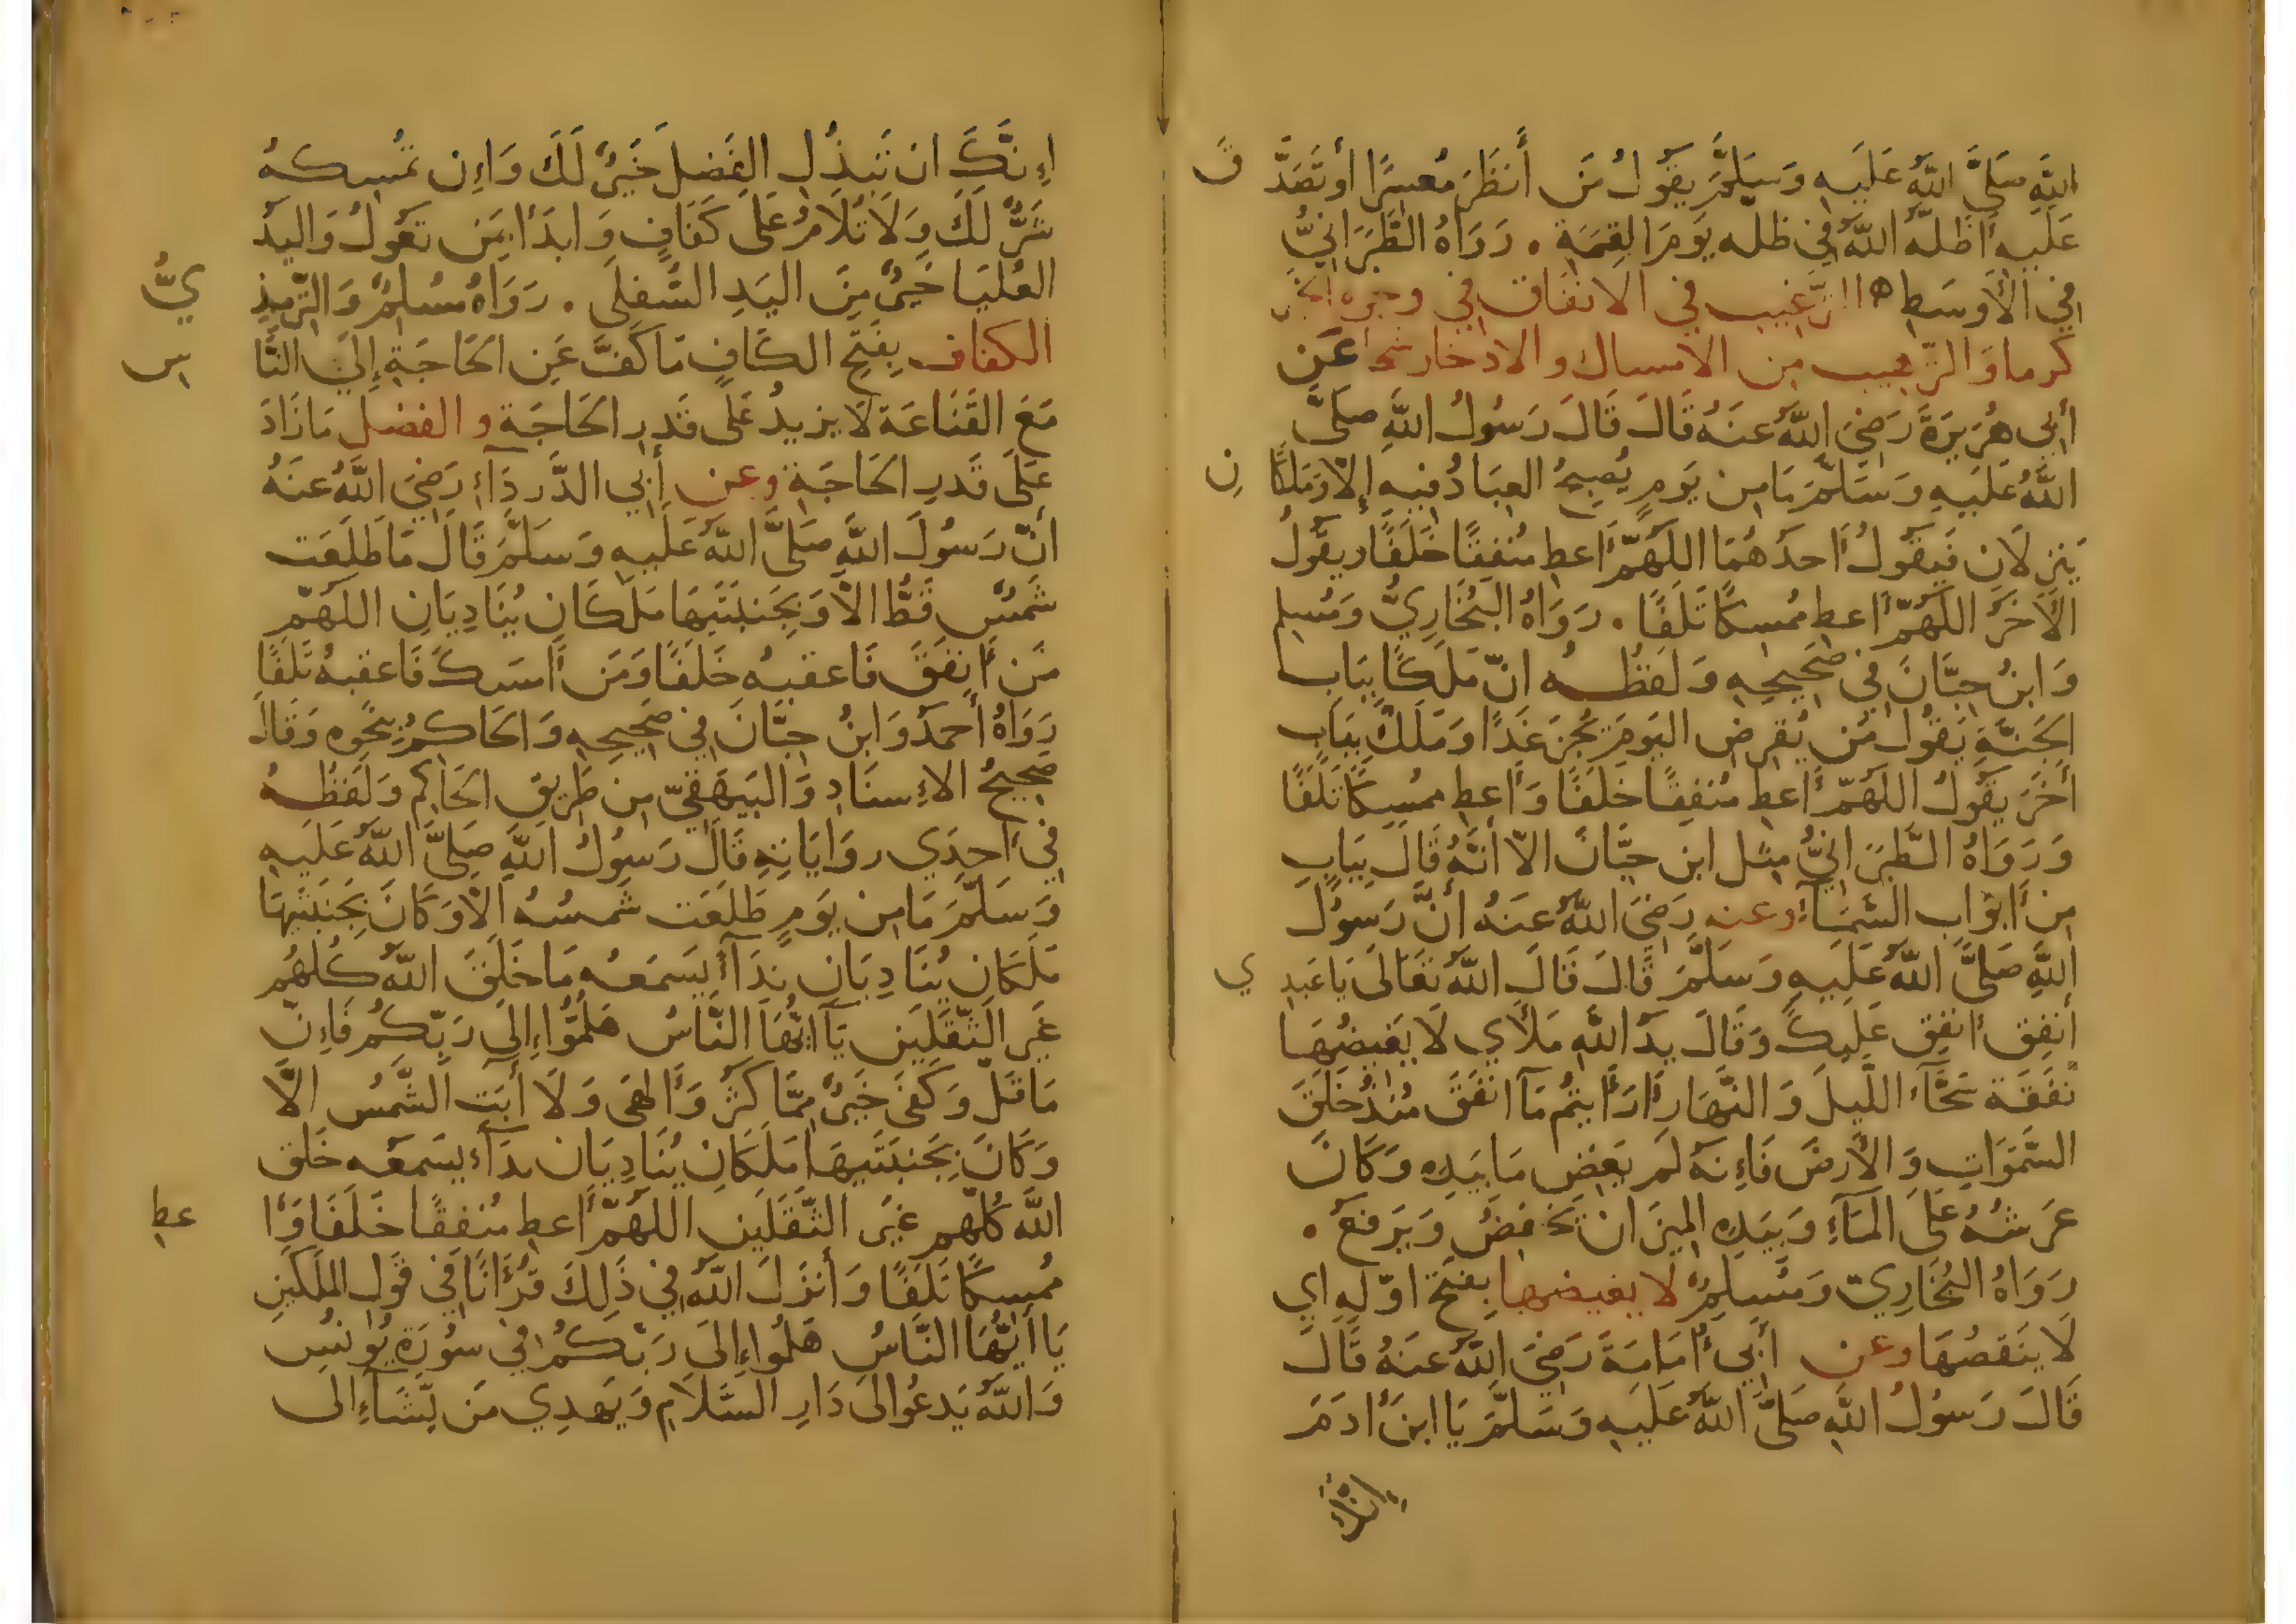 اللَّهِ صَلَّى اللَّهُ عَلَيهِ وَسَلَّمَ يَقُولُ مَن أَنظَرَ مُعسِرًا أَو تَصَدَّ ق
عَلَيهِ أَظَلَّهُ اللَّهُ فِي ظِلِّه يَومَ القِيمَةِ . رَوَاهُ الطَّبَرَانِيُّ
فِي الأَوسَطِ ه الترغيب في الانفاق في وجوه الخير
كرما وَالترهيب من الامساك والادخار شحا عَن
أَبِي هُرَيرَةَ رَضِيَ اللَّهُ عَنهُ قَالَ قَالَ رَسُولُ اللَّهِ صَلَّى
اللَّهُ عَلَيهِ وَسَلَّمَ مَا مِن يَومٍ يُصبِحُ العِبَادُ فِيهِ إِلاَّ وَمَلَكَا نِ
يَنزِلَانِ فَيَقُولُ أَحَدُهُمَا اللَّهُمَّ أَعطِ مُنفِقًا خَلَفًا وَيقُولُ
الأَخَرُ اللَّهُمَّ أَعطِ مُمسِكًا تَلَفًا . رَوَاهُ البُخَارِيُّ وَمُسلِم
وَابنُ حِبَّانَ فِي صَحِيحِهِ وَلَفظُهُ انَّ مَلَكًا بِبَابِ
الجَنَّةِ يَقُولُ مَن يُقرِضِ اليَومَ يُجزَ غَدًا وَمَلَكٌ بِبَابٍ
أَخَرَ يَقُولُ اللَّهُمَّ أَعطِ مُنفِقًا خَلَفًا وَأَعطِ مُمسِكًا تَلَفًا
وَرَوَاهُ الطَّبَرَانِيُّ مِثل ابن حِبَّانَ الاَّ أَنَّهُ قَالَ بِبَابٍ
مِن أَبوَابِ السَّمَآءِ وعنه رَضِيَ اللَّهُ عَنهُ أَنَّ رَسُولَ
اللَّهِ صَلَّى اللَّهُ عَلَيهِ وَسَلَّمَ قَالَ قَالَ اللَّهُ تَعَالَى يَا عَبدِ ي
أَنفِق أُنفِق عَلَيكَ وَقَالَ يَدُ اللَّهِ مَلأَي لَا يَغِيضُهَا
نَفَقَة سَحَّآءُ اللَّيلَ وَالنَّهَارَ أَرَأَيتُم مَآ انفَقَ مُنذُ خَلَقَ
السَّمَوَاتِ وَالأَرضَ فَإِنَّهُ لَم يَغِض مَا بِيَدِهِ وَكَانَ
عَرشُهُ عَلَى المَآءِ وَبِيَدِهِ المِيزَان يَخفِضُ وَيَرفَعُ .
رَوَاهُ البُخَارِيّ وَمُسلِمٌ لا يغيضها بِفَتحِ اوّلِهِ اي
لَا يَنقصُهَا وعن أَبِي أُمَامَةَ رَضِيَ اللَّهُ عَنهُ قَالَ
قَالَ رَسُولُ اللَّهِ صَلَّى اللَّهُ عَلَيهِ وَسَلَّمَ يَا ابنَ أَدَمَ
إنك
إِنَّكَ ان تَبذُلِ الفَضلَ خَيرٌ لَكَ وَإِن تُمسِكهُ
شَرٌّ لَكَ وَلَا تُلَامُ عَلَى كَفَافٍ وَابدَأ بِمَن تَعُولُ وَاليَدُ
العُليَا خَيرٌ مِنَ اليَدِ السُّفلَى . رَوَاهُ مُسلِمٌ وَالتِّرمِذِ يُّ
الكفاف بِفَتحِ الكَافِ مَا كَفَّ عَنِ الحَاجَةِ إِلَى النَّا سِ
مَعَ القَنَاعَة لَا يزيدُ عَلَى قَدرِ الحَاجَة و الفضل مَا زَادَ
عَلَى قَدرِ الحَاجَةِ وعن أَبِي الدَّردَآءِ رَضِيَ اللَّهُ عَنهُ
أَنَّ رَسُولَ اللَّهِ صَلَّى اللَّهُ عَلَيهِ وَسَلَّمَ قَالَ مَا طَلَعَت
شَمسٌ قَطُّ الاَّ وَبِجَنبَتَيهَا مَلَكَانِ يُنَادِيَانِ اللَّهُمّ
مَن أَنفَقَ فَاعقبهُ خَلَفًا وَمَن أَمسَكَ فَاعقبهُ تَلَفًا
رَوَاهُ أَحمَدُ وَابنُ حِبَّانَ فِي صَحِيحِهِ وَالحَاكِمُ بِنَحوِهِ وَقَالَ
صَحِيحُ الاِسنَادِ وَالبَيهَقِيّ مِن طَرِيقِ الحَاكِم وَلَفظُهُ
فِي أَحدِي روَايَاتِهِ قَالَ رَسُولُ اللَّهِ صَلَّى اللَّهُ عَلَيهِ
وَسَلَّمَ مَا مِن يَومٍ طَلَعَت شَمسُهُ الاَّ وَكَانَ بِجَنبَتَيهَا
مَلَكَانِ يُنَادِيَانِ نِدَآءً يَسمَعُه مَا خَلَقَ اللَّهُ كُلهُم
غَير الثَّقَلَينِ يَآ ايُّهَا النَّاسُ هَلُمُّوا إِلَى رَبِّكُم فَاِنَّ
مَا قَلَّ وَكَفَى خَيرٌ مِمَّا كَثُرَ وَأَلهَى وَلَا أَبَت الشَّمسُ الاَّ
وَكَانَ بِجَنبَتَيهَا مَلَكَانِ يُنَادِيَان نِدَآءً يَسمَعُه خَلَق
اللَّه كُلّهم غيرَ الثَّقَلَين اللَّهُمَّ أَعطِ مُنفِقًا خَلَفًا وَأَ عطِ
مُمسِكًا تَلَفًا وَأَنزَلَ اللَّهُ فِي ذَلِكَ قُرأَنًا فِي قَولِ المَلَكَينِ
يَا أَيُّهَا النَّاسُ هَلُمُّوا إِلَى رَبِّكُم فِي سُورَةِ يُونُسَ
وَاللَّهُ يَدعُوا الَى دَارِ السَّلَامِ وَيَهدِي مَن يَّشَآءُ الَى